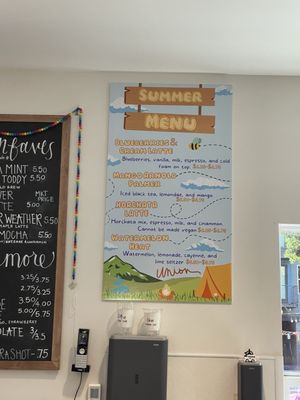 n faves
A MINT 5.50
TODDY 5.50
MKT
PRICE
5.00
WEATHER 5.50
MOCHA 5.50
more
3.25/3.75
2.75/3.25
3.50/4.00
5.00/6.75
3/3.5
RA SHOT - .75
SUMMER
MENU
BLUEBERRIES &
CREAM LATTE
Blueberries, vanilla, milk, espresso, and cold
foam on top.
MANGO ARNOLD
PALMER
Iced black tea, lemonade, and mango.
HORCHATA
LATTE
Horchata mix, espresso, milk, and cinnamon.
Cannot be made vegan
WATERMELON
HEAT
Watermelon, lemonade, cayenne, and
lime seltzer
Union